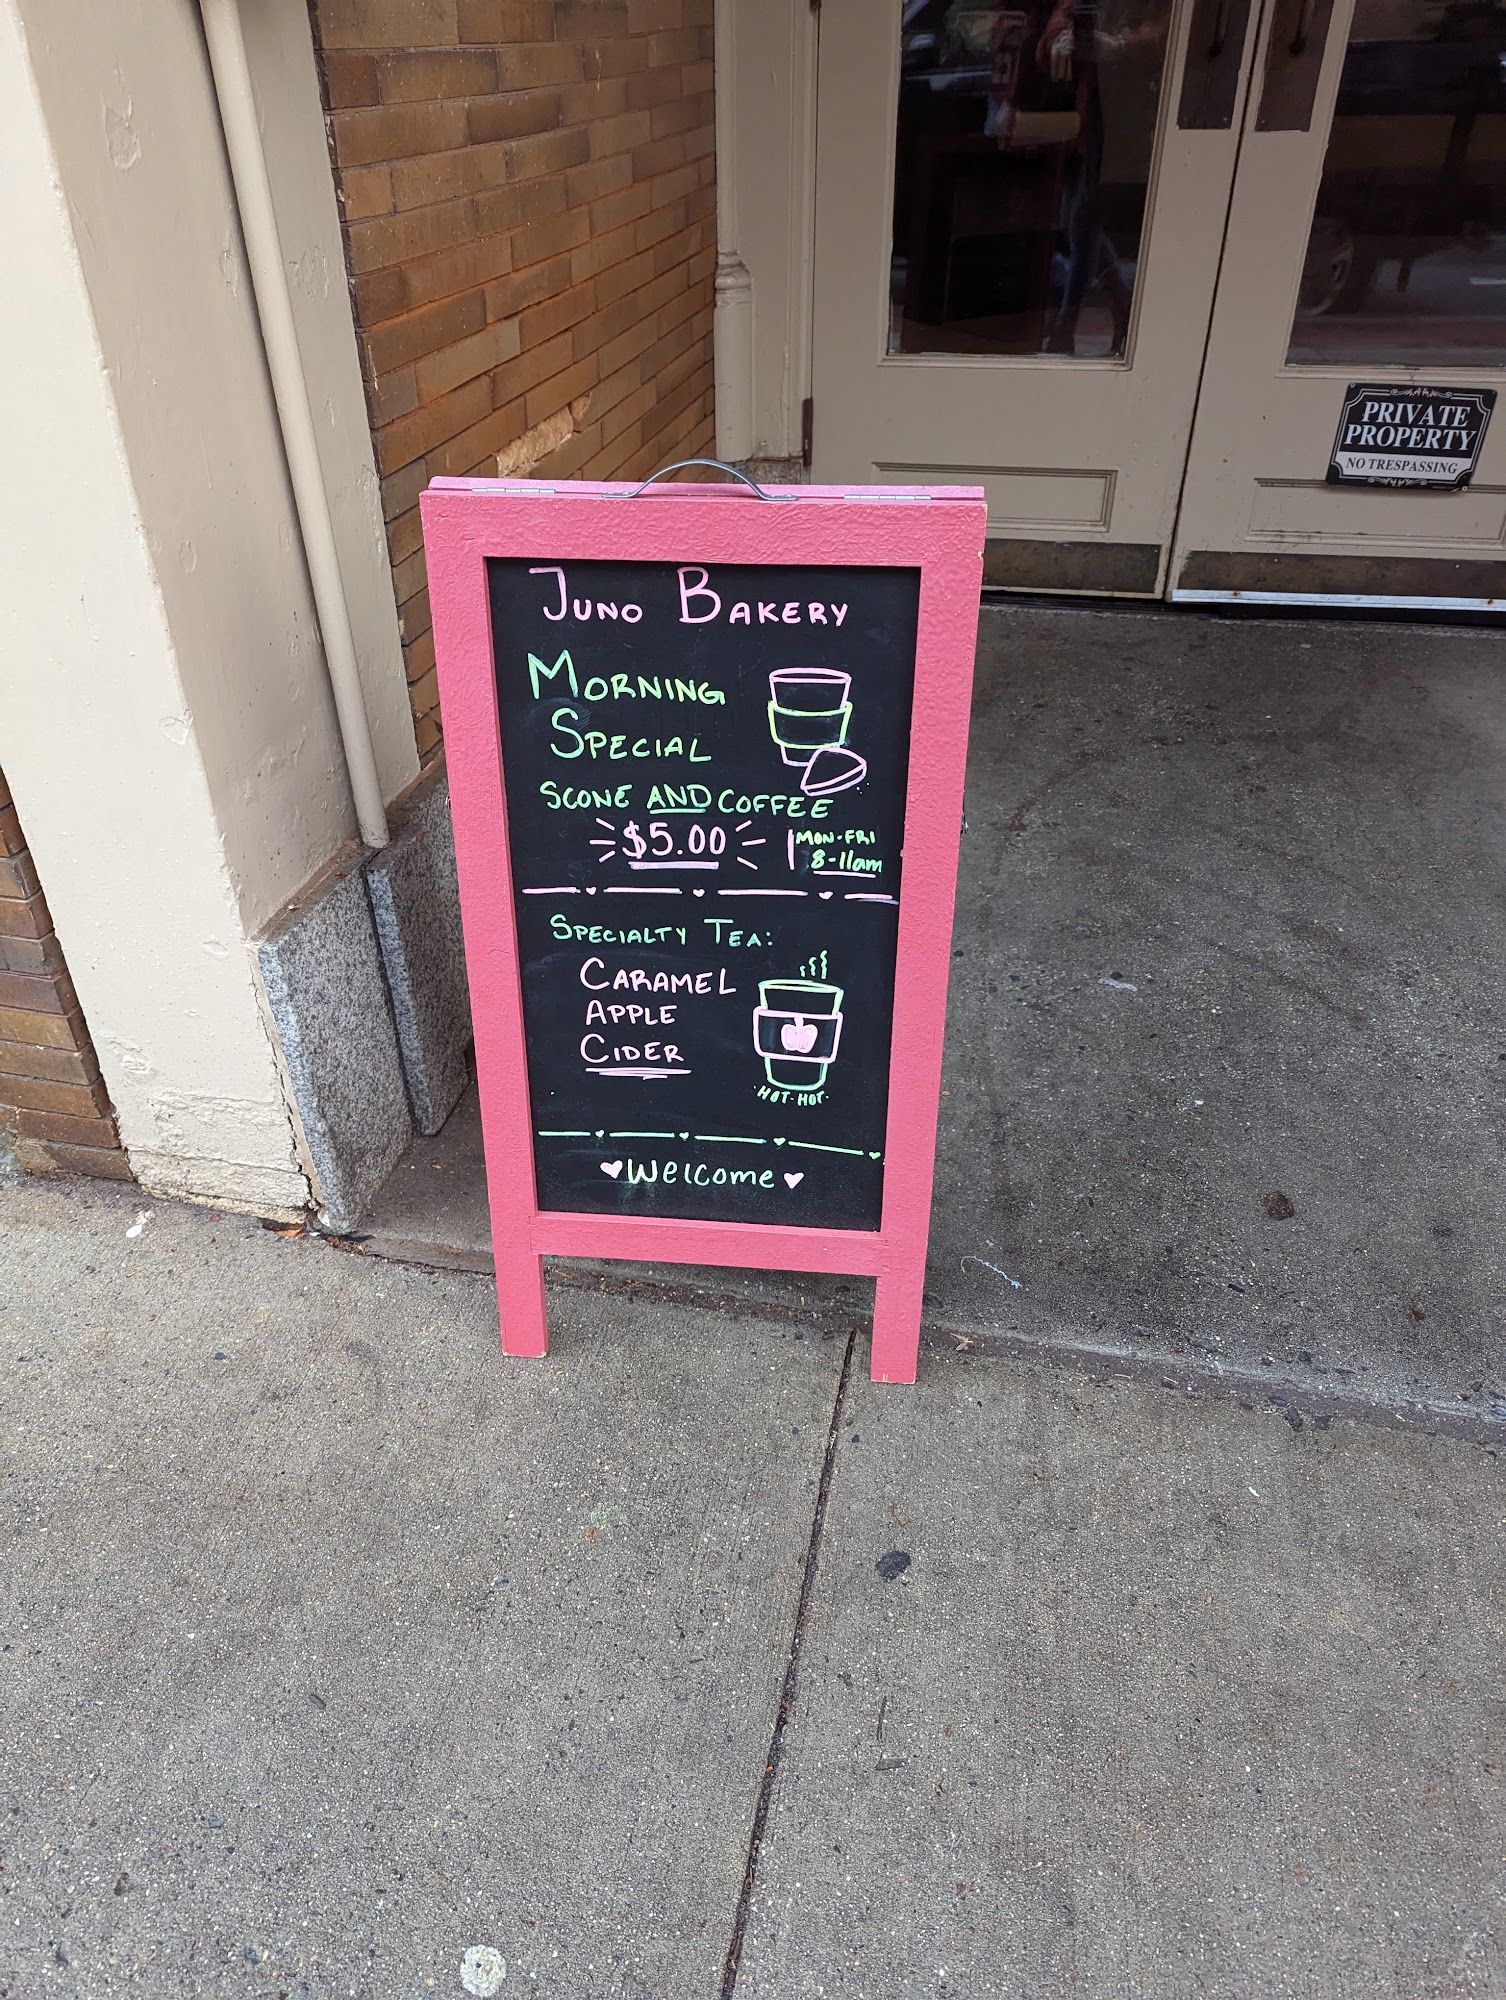 JUNO BAKERY
MORNING
SPECIAL
SCONE AND COFFEE
$5.00
MON-FRI
8-11am
SPECIALTY TEA:
CARAMEL
APPLE
CIDER
HOT-HOT
Welcome
PRIVATE
PROPERTY
NO TRESPASSING